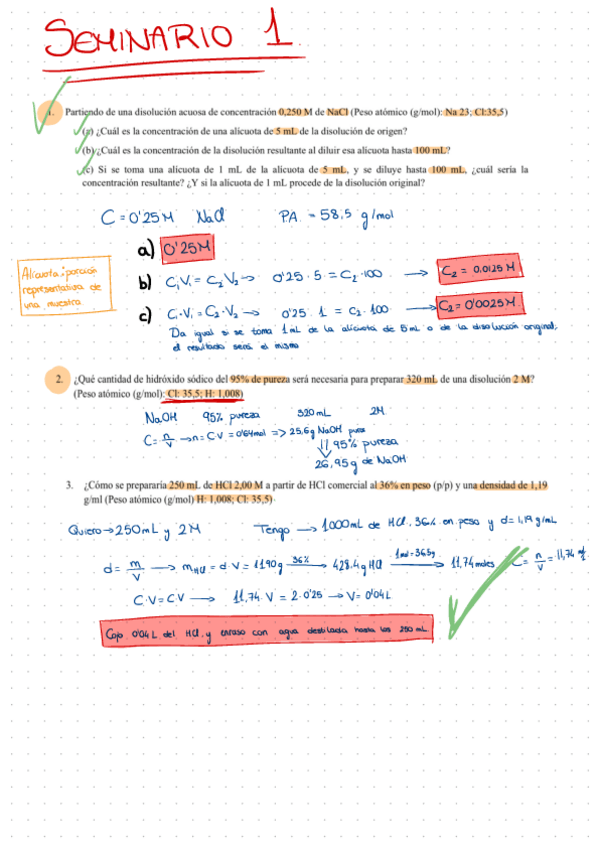 SEMINARIO 1.
1. Partiendo de una disolución acuosa de concentración 0,250 M de NaCl (Peso atómico (g/mol): Na 23; Cl:35,5)
(a) ¿Cuál es la concentración de una alícuota de 5 mL de la disolución de origen?
(b) ¿Cuál es la concentración de la disolución resultante al diluir esa alícuota hasta 100 mL?
(c) Si se toma una alícuota de 1 mL de la alícuota de 5 mL, y se diluye hasta 100 mL, ¿cuál sería la
concentración resultante? ¿Y si la alícuota de 1 mL procede de la disolución original?
C = 0'25M NaCl PA = 58,5 g/mol
a) 0'25M
Alícuota: porción
representativa de
una muestra
b) C₁V₁ = C₂V₂ → 0'25 · 5 = C₂ · 100 → C₂ = 0,0125 M
c) C₁·V₁ = C₂·V₂ → 0'25 · 1 = C₂ · 100 → C₂ = 0'0025M
Da igual si se toma 1mL de la alícuota de 5mL o de la disolución original,
el resultado será el mismo
2. ¿Qué cantidad de hidróxido sódico del 95% de pureza será necesaria para preparar 320 mL de una disolución 2 M?
(Peso atómico (g/mol): Cl: 35,5; H: 1,008)
NaOH 95% pureza 320mL 2M
C = n/V → n = CV = 0'64mol => 25,6g NaOH puros
95% pureza
26,95g de NaOH
3. ¿Cómo se prepararía 250 mL de HCl 2,00 M a partir de HCl comercial al 36% en peso (p/p) y una densidad de 1,19
g/ml (Peso atómico (g/mol) H: 1,008; Cl: 35,5)
Quiero → 250mL y 2M Tengo → 1000mL de HCl, 36% en peso y d = 1,19 g/mL
d = m/V → mHCl = d·V = 1190g 36% → 428.4g HCl 1mol = 36.5g → 11,74 moles C = n/V = 11,74 M
C·V = CV → 11,74 · V = 2·0'25 → V = 0'04L
Cojo 0'04L del HCl y enraso con agua destilada hasta los 250 mL.